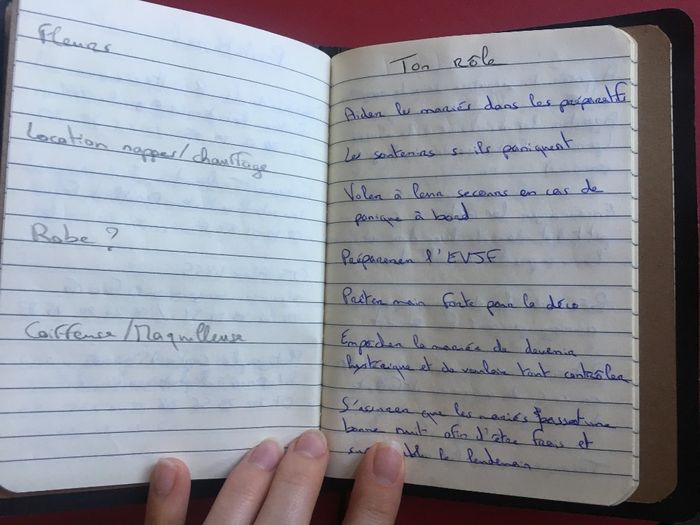 Fleurs
Location nappes/chauffage
Robe ?
Coiffeuse/Maquilleuse
Ton rôle
Aider les mariés dans les préparatifs
Les soutenir si ils paniquent
Voler à leur secours en cas de
panique à bord
Préparer l'EVJF
Prêter main forte pour la déco
Empêcher la mariée de devenir
hystérique et de vouloir tout contrôler
S'assurer que les mariés passent une
bonne nuit afin d'être frais et
le lendemain